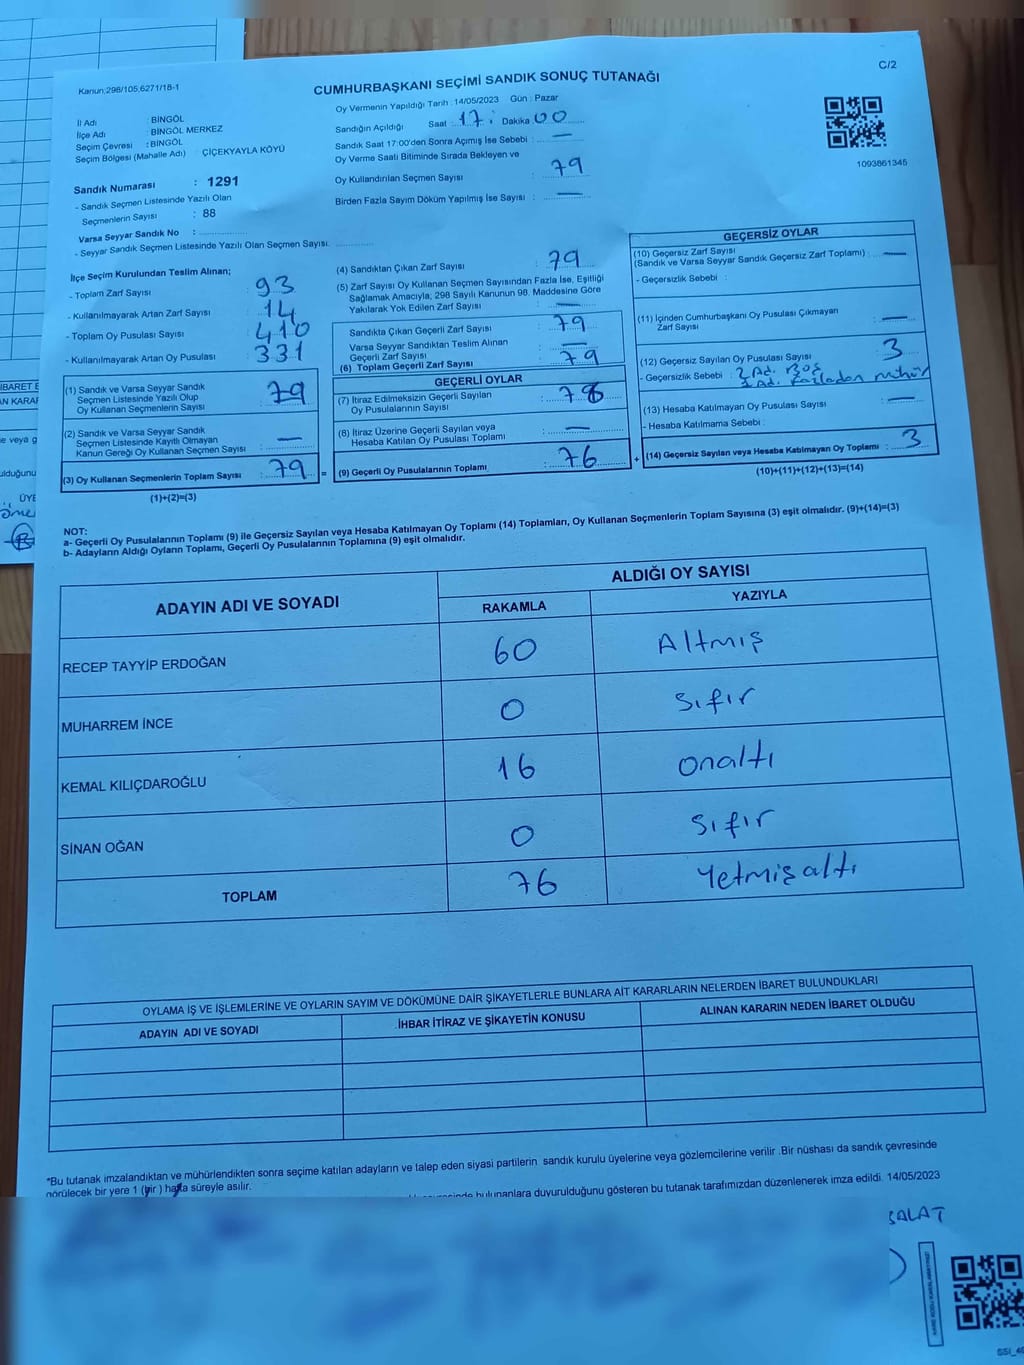 C/2
Kanun;298/105,6271/18-1
CUMHURBAŞKANI SEÇİMİ SANDIK SONUÇ TUTANAĞI
Oy Vermenin Yapıldığı Tarih : 14/05/2023 Gün : Pazar
İl Adı : BİNGÖL
İlçe Adı : BİNGÖL MERKEZ
Seçim Çevresi : BİNGÖL
Seçim Bölgesi (Mahalle Adı) ÇİÇEKYAYLA KÖYÜ
Sandığın Açıldığı Saat : 17 : Dakika 00
Sandık Saat 17:00'den Sonra Açımış İse Sebebi : —
Oy Verme Saati Bitiminde Sırada Bekleyen ve
Oy Kullandırılan Seçmen Sayısı : 79
Birden Fazla Sayım Döküm Yapılmış İse Sayısı : —
1093861345
Sandık Numarası : 1291
- Sandık Seçmen Listesinde Yazılı Olan
Seçmenlerin Sayısı : 88
Varsa Seyyar Sandık No :
- Seyyar Sandık Seçmen Listesinde Yazılı Olan Seçmen Sayısı:
İlçe Seçim Kurulundan Teslim Alınan;
- Toplam Zarf Sayısı 93
- Kullanılmayarak Artan Zarf Sayısı 14
- Toplam Oy Pusulası Sayısı 410
- Kullanılmayarak Artan Oy Pusulası 331
(1) Sandık ve Varsa Seyyar Sandık
Seçmen Listesinde Yazılı Olup
Oy Kullanan Seçmenlerin Sayısı : 79
(2) Sandık ve Varsa Seyyar Sandık
Seçmen Listesinde Kayıtlı Olmayan
Kanun Gereği Oy Kullanan Seçmen Sayısı : —
(3) Oy Kullanan Seçmenlerin Toplam Sayısı : 79 =
(1)+(2)=(3)
(4) Sandıktan Çıkan Zarf Sayısı : 79
(5) Zarf Sayısı Oy Kullanan Seçmen Sayısından Fazla İse, Eşitliği
Sağlamak Amacıyla; 298 Sayılı Kanunun 98. Maddesine Göre
Yakılarak Yok Edilen Zarf Sayısı : —
Sandıkta Çıkan Geçerli Zarf Sayısı : 79
Varsa Seyyar Sandıktan Teslim Alınan
Geçerli Zarf Sayısı : —
(6) Toplam Geçerli Zarf Sayısı : 79
GEÇERLİ OYLAR
(7) İtiraz Edilmeksizin Geçerli Sayılan
Oy Pusulasının Sayısı :
(8) İtiraz Üzerine Geçerli Sayılan veya
Hesaba Katılan Oy Pusulası Toplamı : —
(9) Geçerli Oy Pusulalarının Toplamı : 76 +
GEÇERSİZ OYLAR
(10) Geçersiz Zarf Sayısı
(Sandık ve Varsa Seyyar Sandık Geçersiz Zarf Toplamı) : —
- Geçersizlik Sebebi :
(11) İçinden Cumhurbaşkanı Oy Pusulası Çıkmayan
Zarf Sayısı : —
(12) Geçersiz Sayılan Oy Pusulası Sayısı : 3
- Geçersizlik Sebebi : 2 Ad. Boş
1 Ad. Fazladan mühür
(13) Hesaba Katılmayan Oy Pusulası Sayısı : —
- Hesaba Katılmama Sebebi :
(14) Geçersiz Sayılan veya Hesaba Katılmayan Oy Toplamı : 3
(10)+(11)+(12)+(13)=(14)
NOT:
a- Geçerli Oy Pusulalarının Toplamı (9) ile Geçersiz Sayılan veya Hesaba Katılmayan Oy Toplamı (14) Toplamları, Oy Kullanan Seçmenlerin Toplam Sayısına (3) eşit olmalıdır. (9)+(14)=(3)
b- Adayların Aldığı Oyların Toplamı, Geçerli Oy Pusulalarının Toplamına (9) eşit olmalıdır.
ADAYIN ADI VE SOYADI
ALDIĞI OY SAYISI
RAKAMLA YAZIYLA
RECEP TAYYİP ERDOĞAN 60 Altmış
MUHARREM İNCE 0 Sıfır
KEMAL KILIÇDAROĞLU 16 onaltı
SİNAN OĞAN 0 Sıfır
TOPLAM 76 Yetmişaltı
OYLAMA İŞ VE İŞLEMLERİNE VE OYLARIN SAYIM VE DÖKÜMÜNE DAİR ŞİKAYETLERLE BUNLARA AİT KARARLARIN NELERDEN İBARET BULUNDUKLARI
ADAYIN ADI VE SOYADI İHBAR İTİRAZ VE ŞİKAYETİN KONUSU ALINAN KARARIN NEDEN İBARET OLDUĞU
*Bu tutanak imzalandıktan ve mühürlendikten sonra seçime katılan adayların ve talep eden siyasi partilerin sandık kurulu üyelerine veya gözlemcilerine verilir .Bir nüshası da sandık çevresinde
görülecek bir yere 1 (bir ) hafta süreyle asılır.
bulunanlara duyurulduğunu gösteren bu tutanak tarafımızdan düzenlenerek imza edildi. 14/05/2023